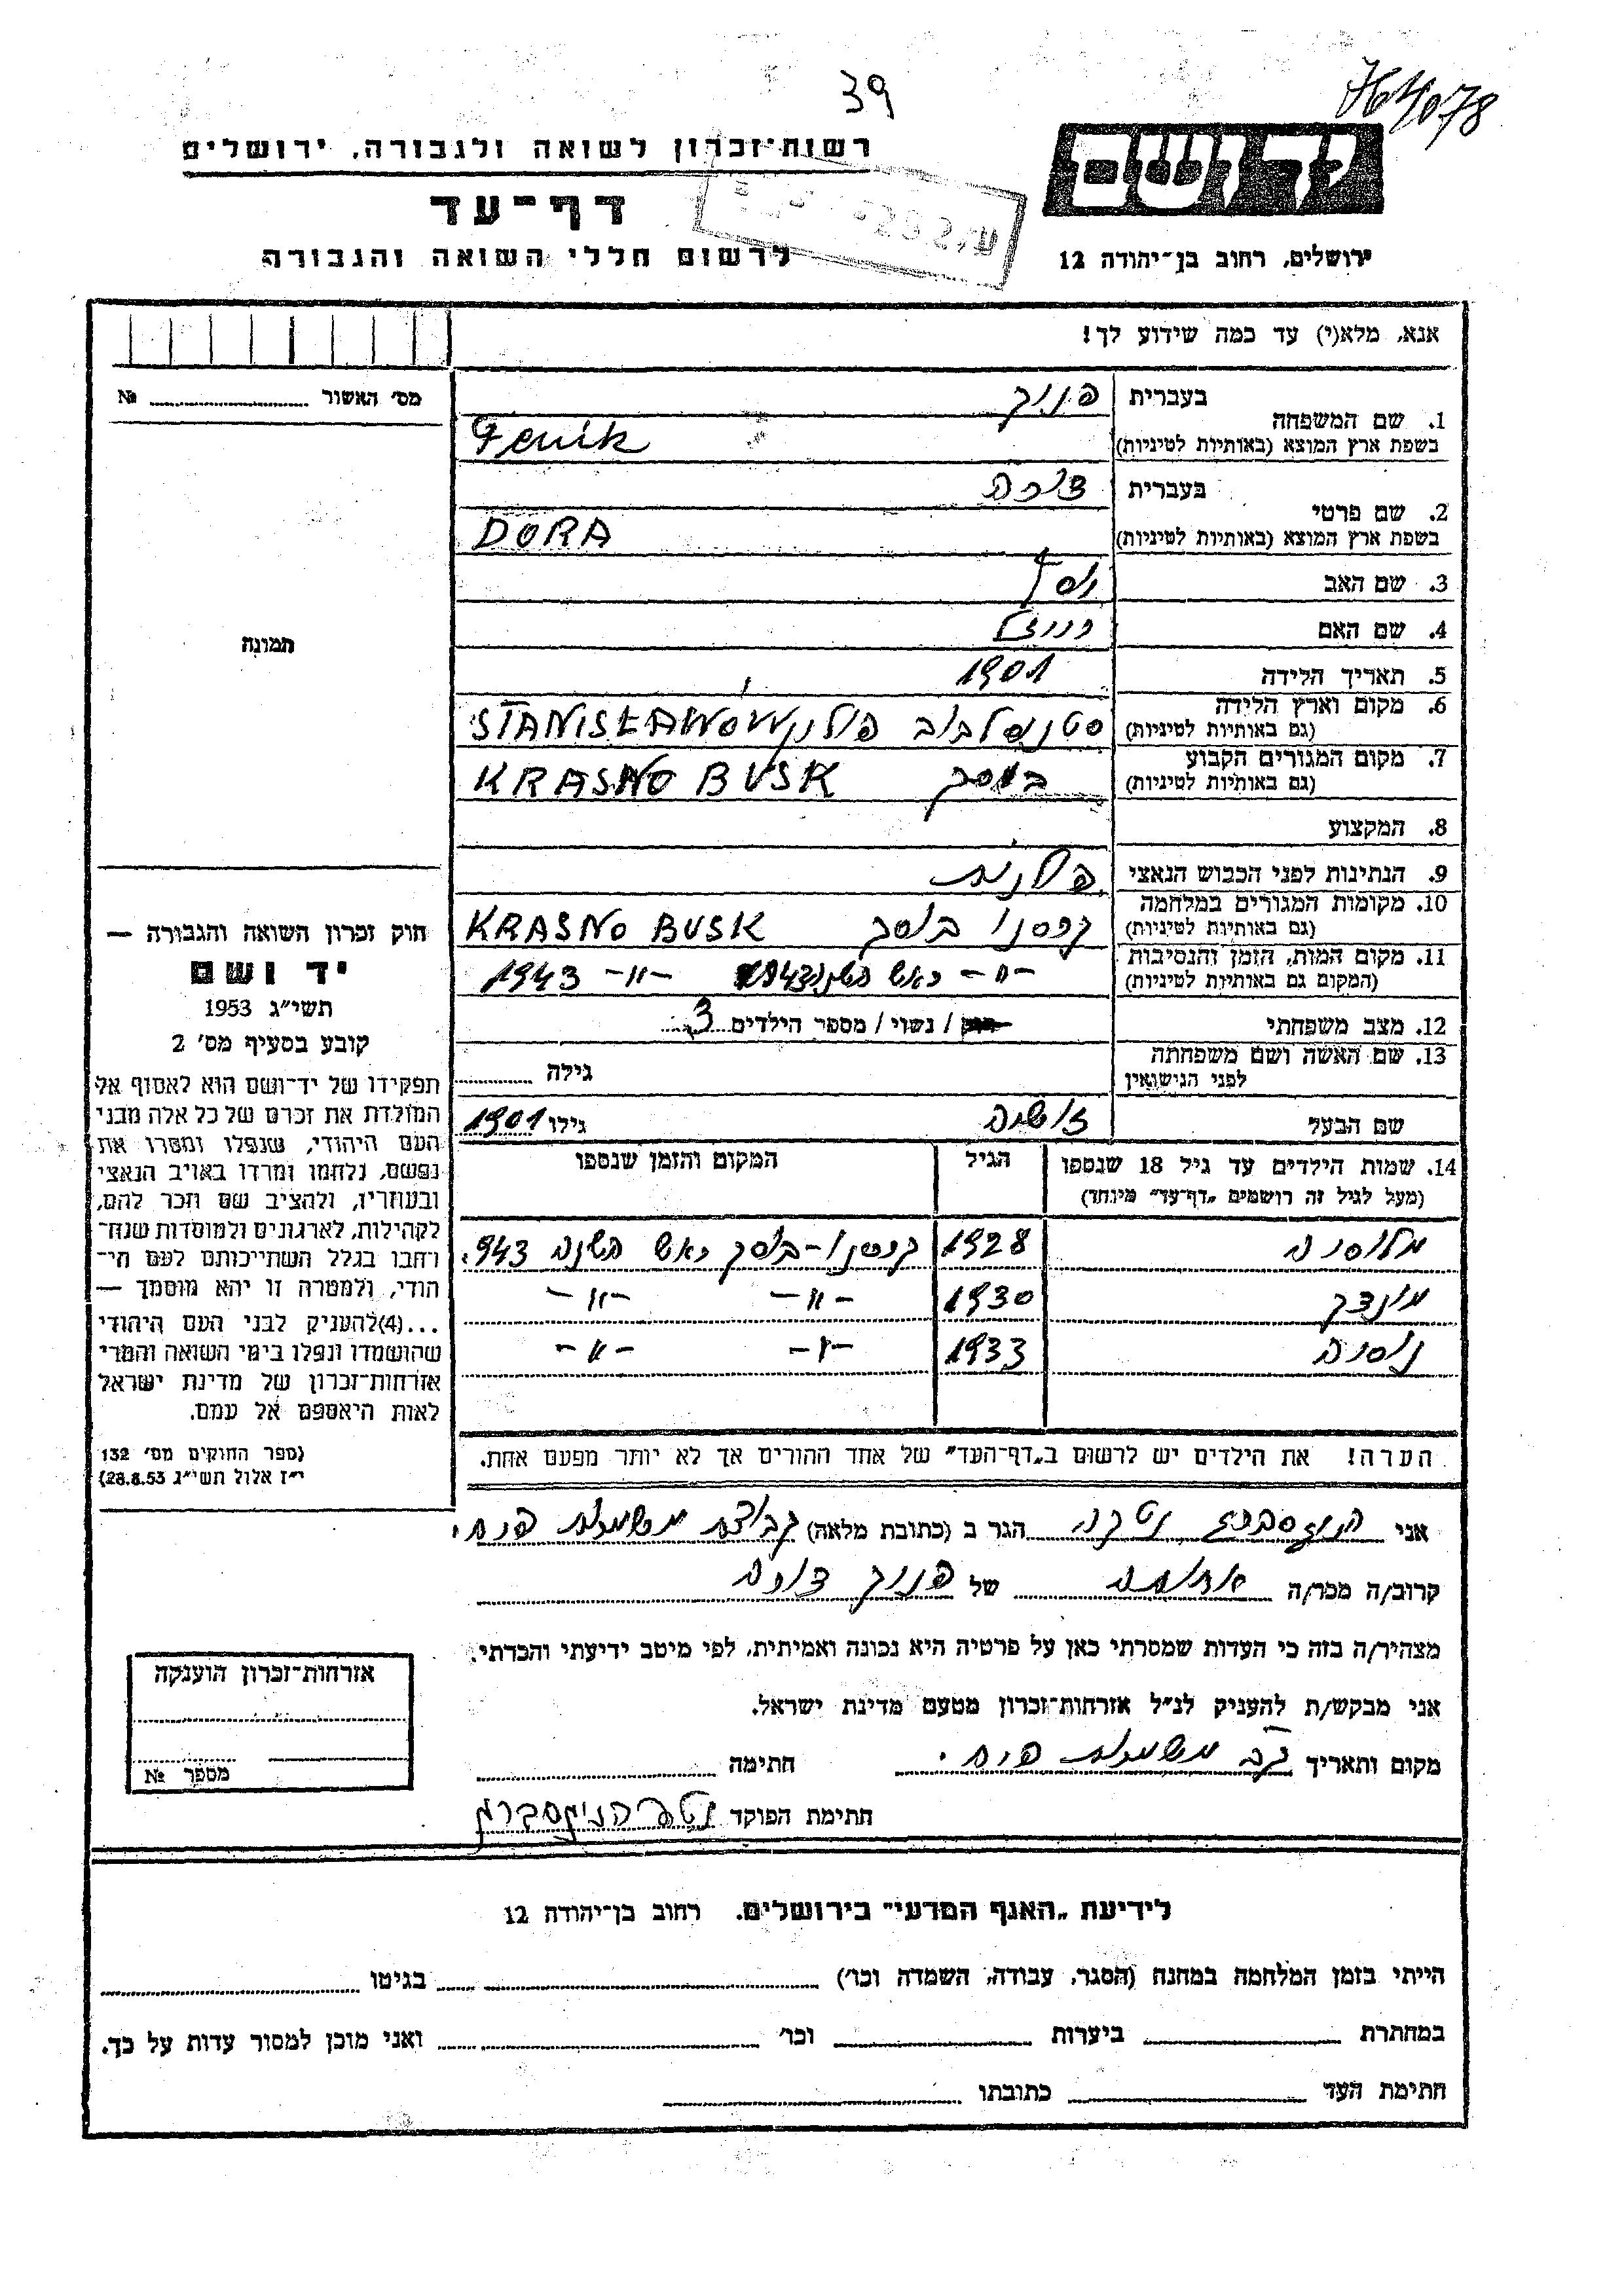 39
764078
רשות-זכרון לשואה ולגבורה, ירושלים
דף-עד
לרשום חללי השואה והגבורה
יד ושם
ירושלים, רחוב בן-יהודה 12
אנא, מלא(י) עד כמה שידוע לך!
מס' האשור № 
תמונה
1. שם המשפחה
בעברית פניק
בשפת ארץ המוצא (באותיות לטיניות) Fenik
2. שם פרטי
בעברית דורה
בשפת ארץ המוצא (באותיות לטיניות) DORA
3. שם האב יוסף
4. שם האם
5. תאריך הלידה 1901
6. מקום וארץ הלידה (גם באותיות לטיניות) סטניסלבוב פולני STANISŁAWÓW
7. מקום המגורים הקבוע (גם באותיות לטיניות) בוסק KRASNO BUSK
8. המקצוע
9. הנתינות לפני הכבוש הנאצי פולנית
10. מקומות המגורים במלחמה (גם באותיות לטיניות) קרסנו בוסק KRASNO BUSK
11. מקום המות, הזמן והנסיבות (המקום גם באותיות לטיניות) -"- ראש השנה 1943 -"- 1943
12. מצב משפחתי רווק / נשוי / מספר הילדים 3
13. שם האשה ושם משפחתה לפני הנישואין גילה
שם הבעל זושיה גילו 1901
14. שמות הילדים עד גיל 18 שנספו (מעל לגיל זה רושמים "דף-עד" מיוחד) הגיל המקום והזמן שנספו
1928 קרסנו-בוסק ראש השנה 943.
מונדק 1930 -"- -"-
1933 -"- -"-
הערה! את הילדים יש לרשום ב"דף-העד" של אחד ההורים אך לא יותר מפעם אחת.
חוק זכרון השואה והגבורה —
יד ושם
תשי"ג 1953
קובע בסעיף מס' 2
תפקידו של יד-ושם הוא לאסוף אל
המולדת את זכרם של כל אלה מבני
העם היהודי, שנפלו ומסרו את
נפשם, נלחמו ומרדו באויב הנאצי
ובעוזריו, ולהציב שם וזכר להם,
לקהילות, לארגונים ולמוסדות שנח-
רחבו בגלל השתייכותם לעם הי-
הודי, ולמטרה זו יהא מוסמך —
...(4)להעניק לבני העם היהודי
שהושמדו ונפלו בימי השואה והמרי
אזרחות-זכרון של מדינת ישראל
לאות היאספם אל עמם.
(ספר החוקים מס' 132
י"ז אלול תשי"ג 28.8.53)
אני הניגסברג יטקה הגר ב (כתובת מלאה) קבוצת משמרות פ.ח.
קרוב/ה מכר/ה אחותה של פניק דורה
מצהיר/ה בזה כי העדות שמסרתי כאן על פרטיה היא נכונה ואמיתית, לפי מיטב ידיעתי והכרתי.
אני מבקש/ת להעניק לנ"ל אזרחות-זכרון מטעם מדינת ישראל.
מקום ותאריך קב' משמרות פ.ח. חתימה
חתימת הפוקד יטה הניגסברג
אזרחות-זכרון הוענקה
מספר №
לידיעת "האגף המדעי" בירושלים. רחוב בן-יהודה 12
הייתי בזמן המלחמה במחנה (הסגר, עבודה, השמדה וכו') בגיטו
במחתרת ביערות וכו' ואני מוכן למסור עדות על כך.
חתימת העד כתובתו